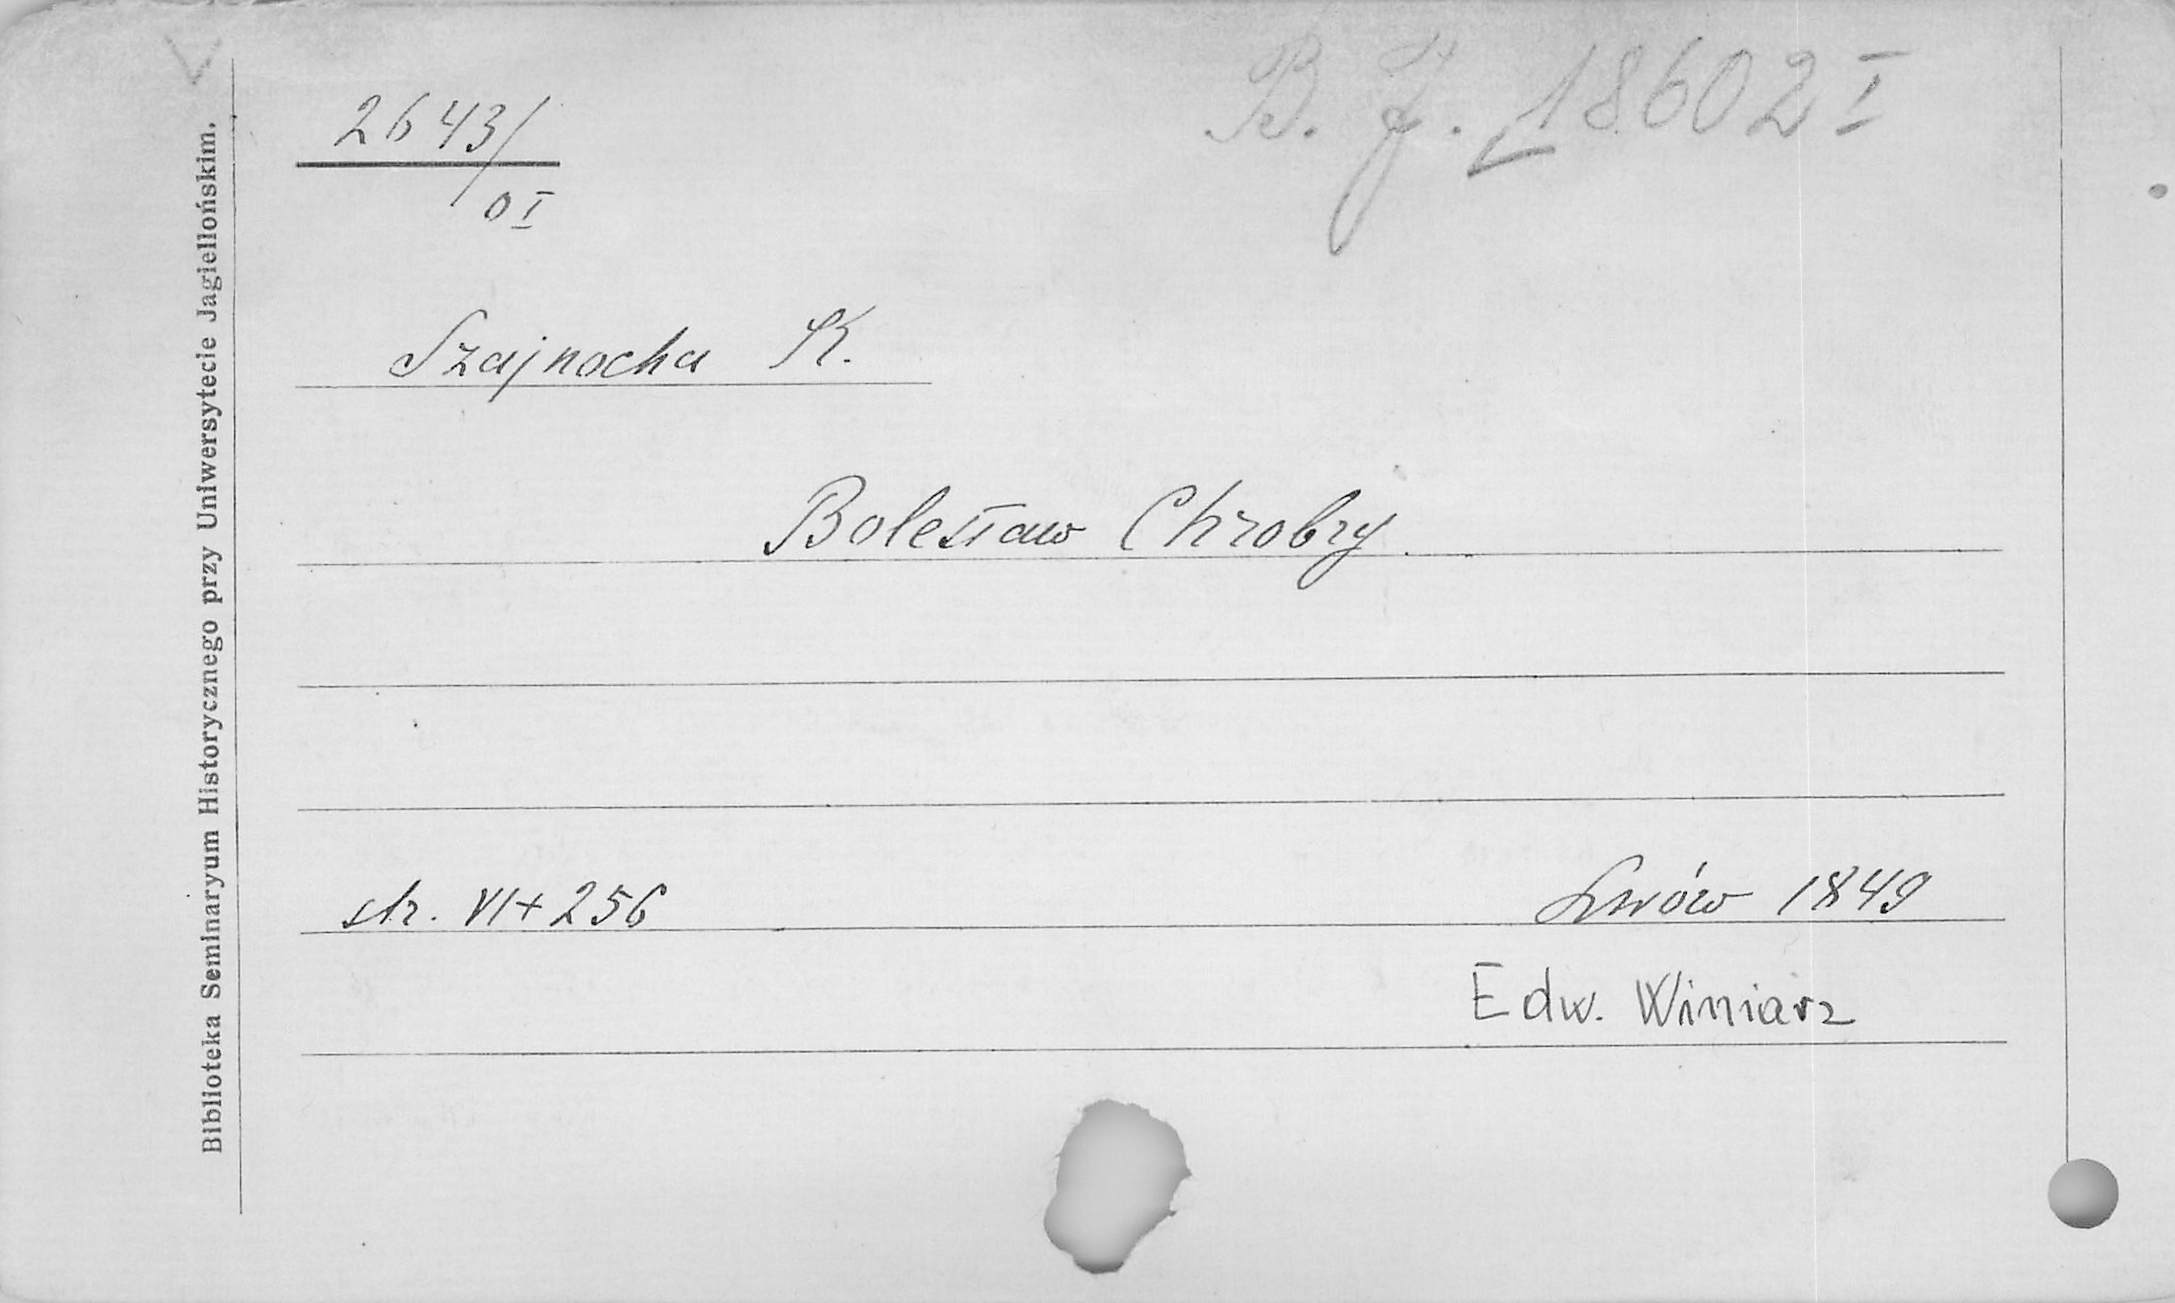 B. J. 18602 I
2643/
OI
Szajnocha K.
Bolesław Chrobry.
str. VI + 256
Lwów 1849
Edw. Winiarz
Biblioteka Seminaryum Historycznego przy Uniwersytecie Jagiellońskim.